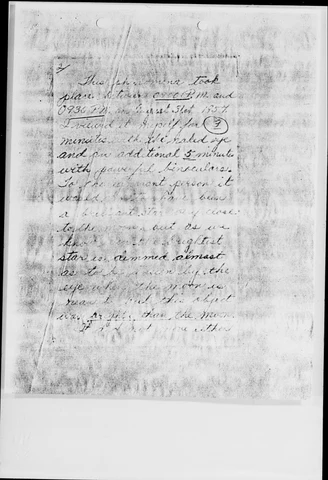 2/
This phenomena took
place between 0900 P.M. and
0935 P.M. on August 31st 1957
I viewed it myself for 3
minutes with the naked eye
and an additional 5 minutes
with powerful binoculars.
To the person it
would have been
a brilliant star very close
to the moon but as we
know the brightest
star is dimmed almost
as to be by the
eye when the moon is
near it but this object
was brighter than the moon
It not